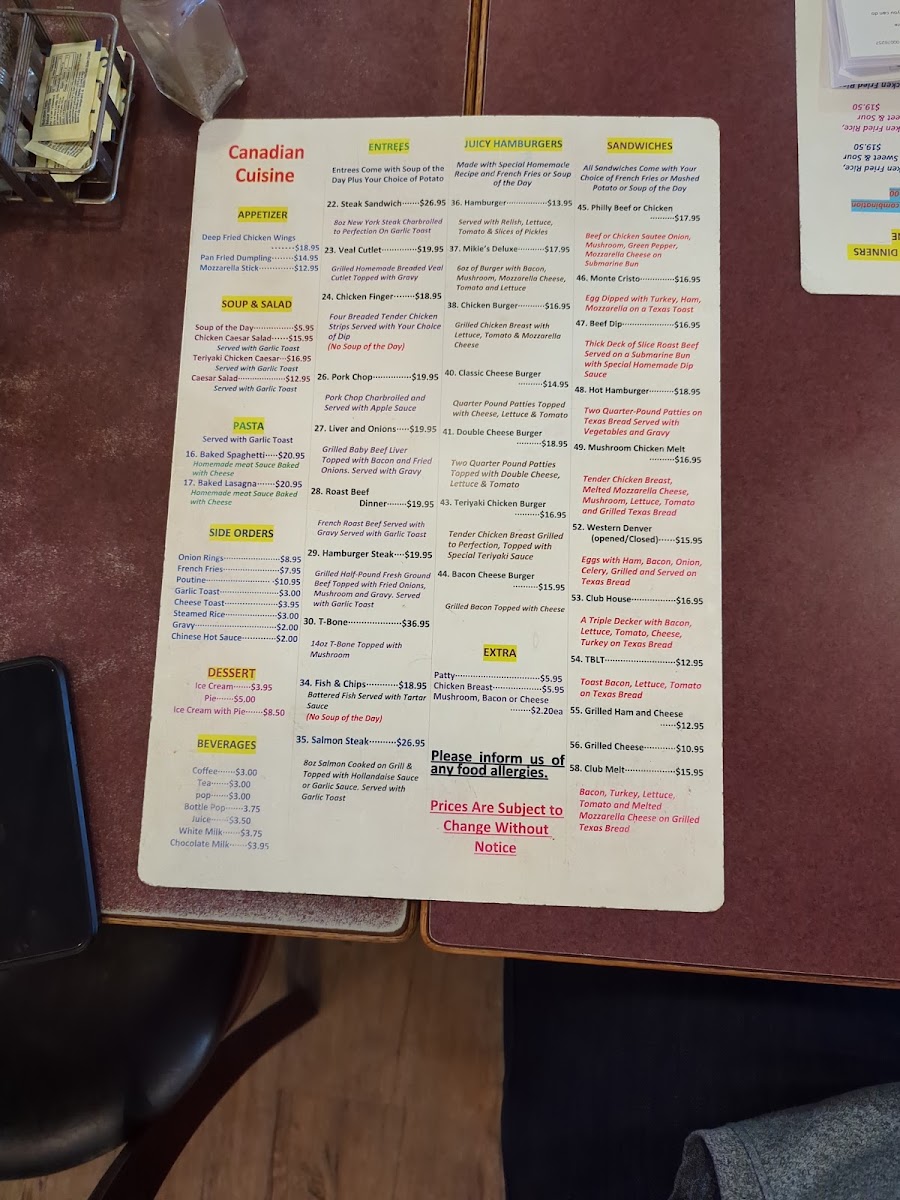 Canadian
Cuisine
APPETIZER
Deep Fried Chicken Wings
·········$18.95
Pan Fried Dumpling·······$14.95
Mozzarella Stick··········$12.95
SOUP & SALAD
Soup of the Day·················$5.95
Chicken Caesar Salad······$15.95
Served with Garlic Toast
Teriyaki Chicken Caesar···$16.95
Served with Garlic Toast
Caesar Salad·····················$12.95
Served with Garlic Toast
PASTA
Served with Garlic Toast
16. Baked Spaghetti·····$20.95
Homemade meat Sauce Baked
with Cheese
17. Baked Lasagna·······$20.95
Homemade meat Sauce Baked
with Cheese
SIDE ORDERS
Onion Rings·······················$8.95
French Fries·······················$7.95
Poutine····························$10.95
Garlic Toast·······················$3.00
Cheese Toast·····················$3.95
Steamed Rice····················$3.00
Gravy································$2.00
Chinese Hot Sauce············$2.00
DESSERT
Ice Cream······$3.95
Pie······$5.00
Ice Cream with Pie·······$8.50
BEVERAGES
Coffee·······$3.00
Tea·······$3.00
pop·······$3.00
Bottle Pop·······3.75
Juice·······$3.50
White Milk·······$3.75
Chocolate Milk·······$3.95
ENTREES
Entrees Come with Soup of the
Day Plus Your Choice of Potato
22. Steak Sandwich·······$26.95
8oz New York Steak Charbroiled
to Perfection On Garlic Toast
23. Veal Cutlet··············$19.95
Grilled Homemade Breaded Veal
Cutlet Topped with Gravy
24. Chicken Finger········$18.95
Four Breaded Tender Chicken
Strips Served with Your Choice
of Dip
(No Soup of the Day)
26. Pork Chop···············$19.95
Pork Chop Charbroiled and
Served with Apple Sauce
27. Liver and Onions·····$19.95
Grilled Baby Beef Liver
Topped with Bacon and Fried
Onions. Served with Gravy
28. Roast Beef
Dinner·········$19.95
French Roast Beef Served with
Gravy Served with Garlic Toast
29. Hamburger Steak····$19.95
Grilled Half-Pound Fresh Ground
Beef Topped with Fried Onions,
Mushroom and Gravy. Served
with Garlic Toast
30. T-Bone·····················$36.95
14oz T-Bone Topped with
Mushroom
34. Fish & Chips···········$18.95
Battered Fish Served with Tartar
Sauce
(No Soup of the Day)
35. Salmon Steak··········$26.95
8oz Salmon Cooked on Grill &
Topped with Hollandaise Sauce
or Garlic Sauce. Served with
Garlic Toast
JUICY HAMBURGERS
Made with Special Homemade
Recipe and French Fries or Soup
of the Day
36. Hamburger··············$13.95
Served with Relish, Lettuce,
Tomato & Slices of Pickles
37. Mikie's Deluxe··········$17.95
6oz of Burger with Bacon,
Mushroom, Mozzarella Cheese,
Tomato and Lettuce
38. Chicken Burger·········$16.95
Grilled Chicken Breast with
Lettuce, Tomato & Mozzarella
Cheese
40. Classic Cheese Burger
·········$14.95
Quarter Pound Patties Topped
with Cheese, Lettuce & Tomato
41. Double Cheese Burger
·········$18.95
Two Quarter Pound Patties
Topped with Double Cheese,
Lettuce & Tomato
43. Teriyaki Chicken Burger
·········$16.95
Tender Chicken Breast Grilled
to Perfection, Topped with
Special Teriyaki Sauce
44. Bacon Cheese Burger
·········$15.95
Grilled Bacon Topped with Cheese
EXTRA
Patty·····························$5.95
Chicken Breast···············$5.95
Mushroom, Bacon or Cheese
·········$2.20ea
Please inform us of
any food allergies.
Prices Are Subject to
Change Without
Notice
SANDWICHES
All Sandwiches Come with Your
Choice of French Fries or Mashed
Potato or Soup of the Day
45. Philly Beef or Chicken
·········$17.95
Beef or Chicken Sautee Onion,
Mushroom, Green Pepper,
Mozzarella Cheese on
Submarine Bun
46. Monte Cristo············$16.95
Egg Dipped with Turkey, Ham,
Mozzarella on a Texas Toast
47. Beef Dip··················$16.95
Thick Deck of Slice Roast Beef
Served on a Submarine Bun
with Special Homemade Dip
Sauce
48. Hot Hamburger········$18.95
Two Quarter-Pound Patties on
Texas Bread Served with
Vegetables and Gravy
49. Mushroom Chicken Melt
·········$16.95
Tender Chicken Breast,
Melted Mozzarella Cheese,
Mushroom, Lettuce, Tomato
and Grilled Texas Bread
52. Western Denver
(opened/Closed)·····$15.95
Eggs with Ham, Bacon, Onion,
Celery, Grilled and Served on
Texas Bread
53. Club House···············$16.95
A Triple Decker with Bacon,
Lettuce, Tomato, Cheese,
Turkey on Texas Bread
54. TBLT·························$12.95
Toast Bacon, Lettuce, Tomato
on Texas Bread
55. Grilled Ham and Cheese
······$12.95
56. Grilled Cheese··········$10.95
58. Club Melt·················$15.95
Bacon, Turkey, Lettuce,
Tomato and Melted
Mozzarella Cheese on Grilled
Texas Bread
DINNERS
combination
$19.50
$19.50